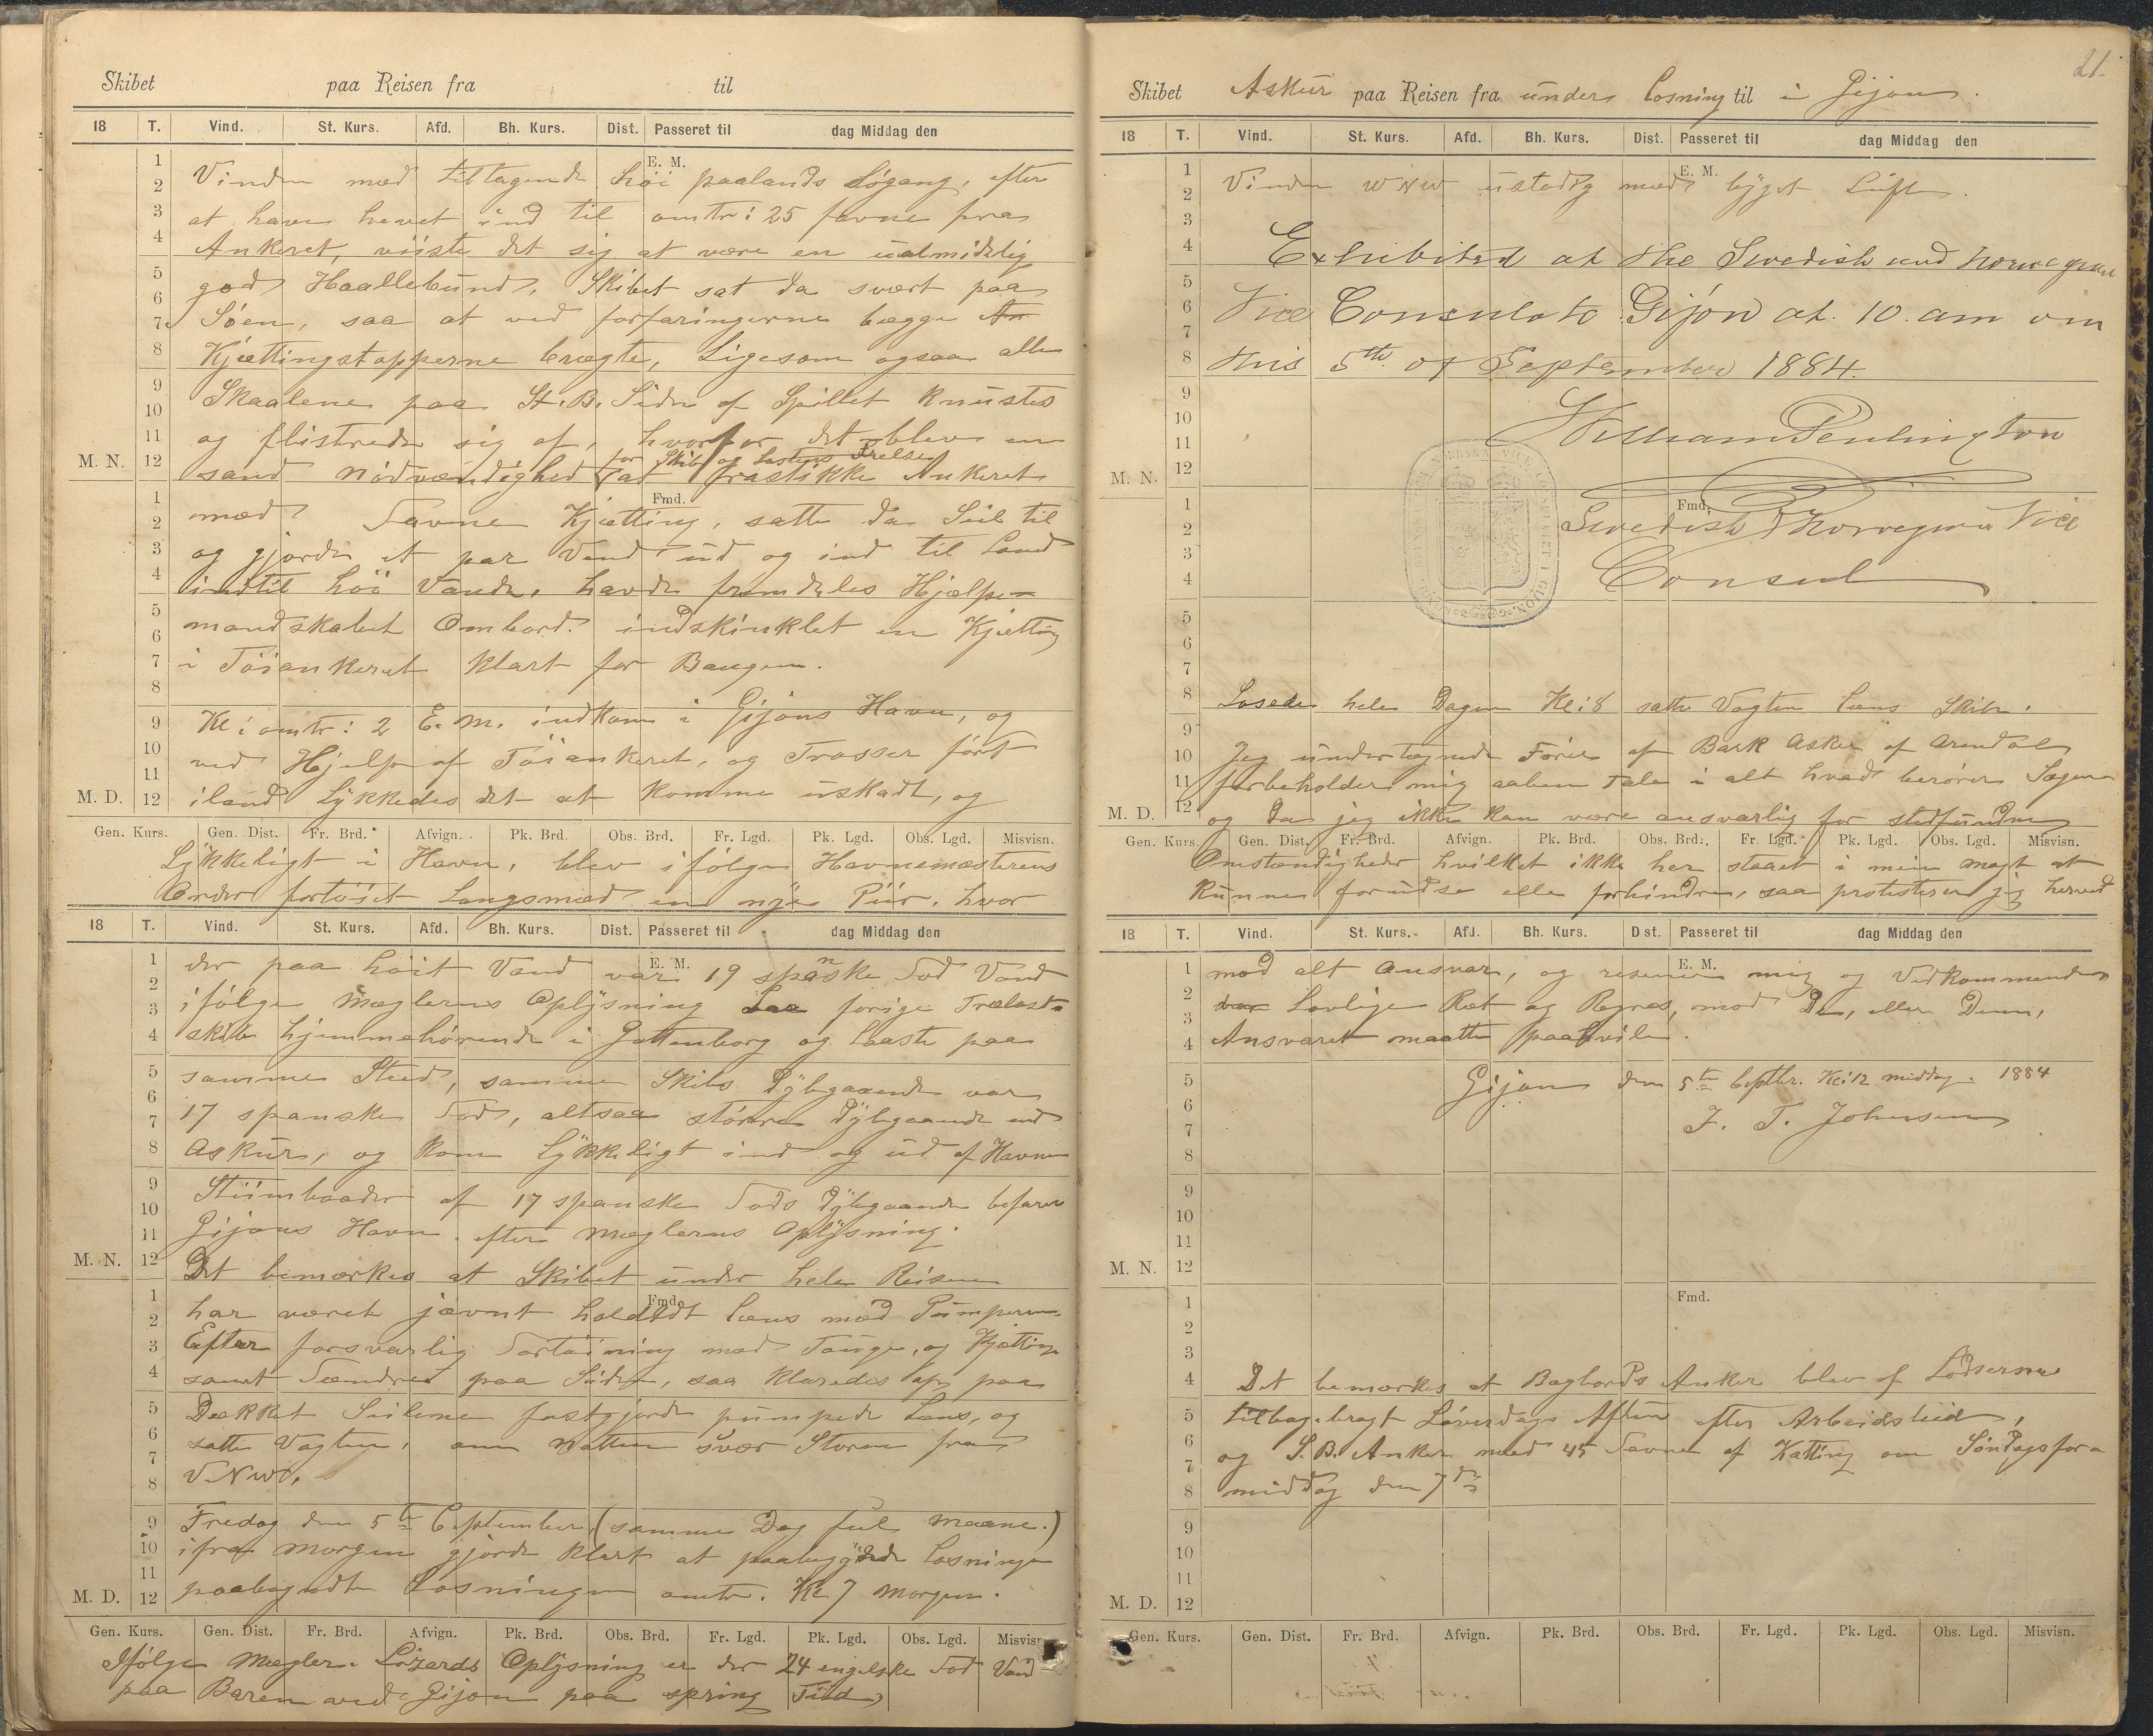 Skibet paa Reisen fra til
18 T. Vind. St. Kurs. Afd. Bh. Kurs. Dist. Passeret til dag Middag den
E. M.
Vinden med tiltagende høi paalands Søgang, efter
at have hevet ind til omtr: 25 favne fra
Ankeret, viiste det sig at være en ualmidelig
god Haallebund. Skibet sat da svært paa
Søen, saa at ved forfaringerne begge An
Kjættingstopperne brægte, Ligesom ogsaa alle
Skaalene paa St.B. Siden af Spillet knustes
og flistrede sig af, hvorfor det blev en
for Skib og Lastens Frelse
M. N. sand Nødvændighed at frastikke Ankeret
Fmd.
med ? Favne Kjætting, satte da Seil til
og gjorde et par Vend ud og ind til Land
indtil høi Vande, havde fremdeles Hjælpe-
mandskabet Ombord. indskinklet en Kjætting
i Tøiankeret klart for Baugen.
Kl: omtr: 2 E. M. indkom i Gijons Havn, og
ved Hjelp af Tøiankeret, og Trosser ført
M. D. iland Lykkedes det at komme uskadt, og
Gen. Kurs. Gen. Dist. Fr. Brd. Afvign. Pk. Brd. Obs. Brd. Fr. Lgd. Pk. Lgd. Obs. Lgd. Misvisn.
Lykkeligt i Havn, blev ifølge Havnemæsterens
Order fortøiet Langsmed en nye Piir, hvor
18 T. Vind. St. Kurs. Afd. Bh. Kurs. Dist. Passeret til dag Middag den
E. M.
der paa høit Vand var 19 spanske Fod Vand
ifølge Mæglerens Oplysning forige Trælast-
skib hjemmehørende i Gottenborg og Laaste paa
samme Sted, samme Skibs Dybgaaende var
17 spanske Fod, altsaa større Dybgaaende end
Askur, og kom Lykkeligt ind og ud af Havnen
Stümbaader af 17 spanske Fods Dybgaaende befarer
Gijons Havn. efter Mæglerens Oplysning.
M. N. Det bemærkes at Skibet under hele Reisen
Fmd.
har været jævnt holdt læns med Pumperne.
Efter forsvarlig Fortøining med Touge, og Kjætting
samt Fendret paa Siden, saa klaredes op paa
Dækket Seilene fastgjorde pumpede Læns, og
satte Vagten, om Natten svær Storm fra
VNW.
Fredag den 5te September (samme Dag ful Maane.)
ifra Morgen gjorde klart at paabegynde Losningen
M. D. paabegyndte Losningen omtr. Kl 7 Morgen.
Gen. Kurs. Gen. Dist. Fr. Brd. Afvign. Pk. Brd. Obs. Brd. Fr. Lgd. Pk. Lgd. Obs. Lgd. Misvisn.
Ifølge Mægler Oplysning er der 24 engelske Fod Vand
paa Baren ved Gijon paa spring Tid
21.
Skibet Askur paa Reisen fra under Losning til i Gijon.
18 T. Vind. St. Kurs. Afd. Bh. Kurs. Dist. Passeret til dag Middag den
E. M.
Vinden WNW ustadig med byget Luft.
Exhibited at the Swedish and Norwegian
Vice Consulate Gijón at 10. am on
this 5th of September 1884.
William Penlington
M. N.
Fmd.
Swedish & Norwegian Vice
Consul
Losede hele Dagen Kl: 8 satte Vagten læns Skib.
Jeg undertegnede Fører af Bark Asker af Arendal
forbeholder mig aaben Tale i alt hvad berører Sagen
M. D. og da jeg ikke kan være ansvarlig for stedfundne
Gen. Kurs. Gen. Dist. Fr. Brd. Afvign. Pk. Brd. Obs. Brd. Fr. Lgd. Pk. Lgd. Obs. Lgd. Misvisn.
Omstændigheder hvilket ikke har staaet i min Magt at
kunne forudse eller forhindre, saa protesterer jeg herved
18 T. Vind. St. Kurs. Afd. Bh. Kurs. Dist. Passeret til dag Middag den
E. M.
mod alt Ansvar, og reserverer mig og Vedkommende
Lovlige Ret og Regres, mod De, eller Denn,
Ansvaret maatte paahvile.
Gijon den 5te Septbr. Kl: 12 middag. 1884
J. T. Johnsen
M. N.
Fmd.
Det bemærkes at Bagbords Anker blev af Lodserne
tilbagebragt Løverdags Aften efter Arbeidstid,
og S.B. Anker med 45 Favne af Kætting om Søndagsfor-
middag den 7de
M. D.
Gen. Kurs. Gen. Dist. Fr. Brd. Afvign. Pk. Brd. Obs. Brd. Fr. Lgd. Pk. Lgd. Obs. Lgd. Misvisn.